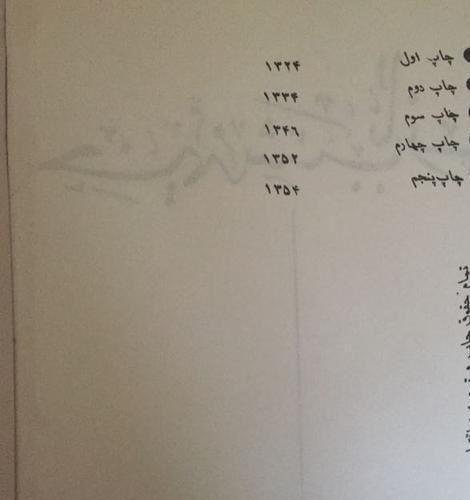 چاپ اول ۱۳۲۴
چاپ دوم ۱۳۳۴
چاپ سوم ۱۳۴۶
چاپ چهارم ۱۳۵۲
چاپ پنجم ۱۳۵۴
تمام حقوق چاپ و